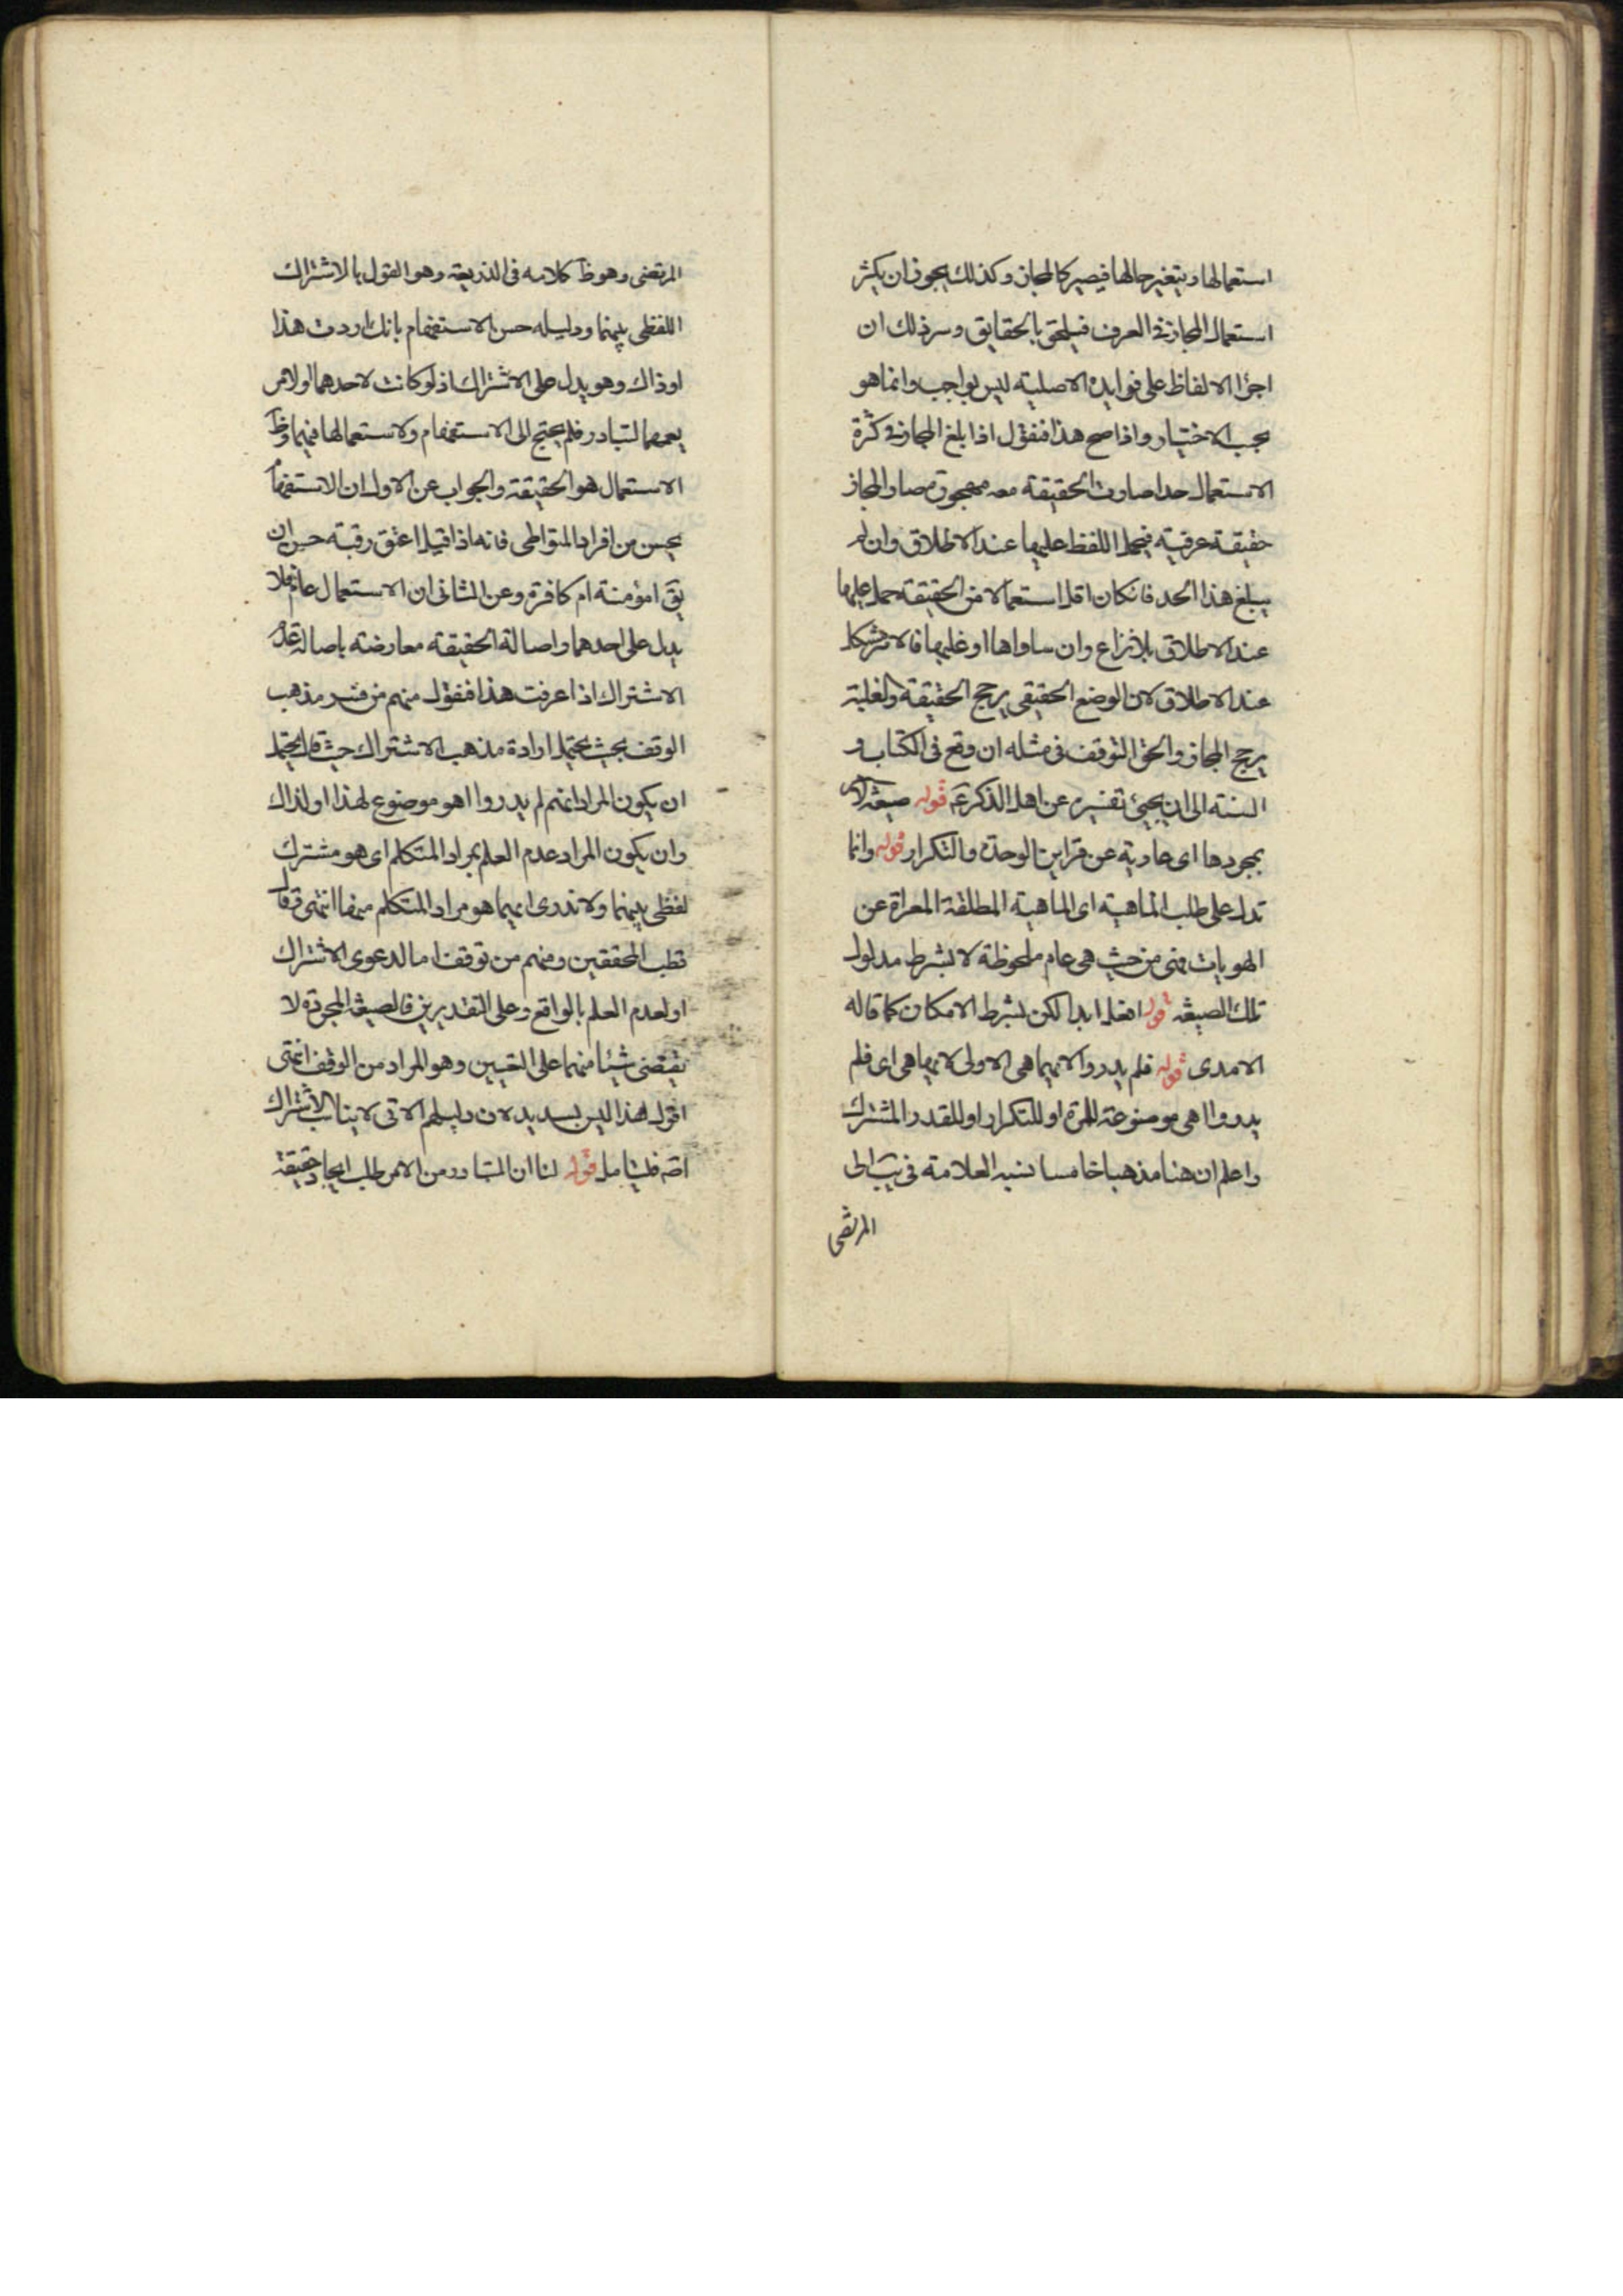 استعمالها ويتغير حالها فيصير كالمجاز وكذلك يجوز ان يكثر
استعمال المجاز في العرف فيلحق بالحقايق وسر ذلك ان
اجرا الالفاظ على فوايده الاصلية ليس بواجب وانما هو
بحسب الاختيار واذا صح هذا فنقول اذا بلغ المجاز في كثرة
الاستعمال حدا صارت الحقيقة معه مهجورة صار المجاز
حقيقة عرفية فيحمل اللفظ عليها عند الاطلاق وان لم
يبلغ هذا الحد فانكان اقل استعمالا من الحقيقة حمل عليها
عند الاطلاق بلا نزاع وان ساواها او غلبها فالامر مشكل
عند الاطلاق لان الوضع الحقيقي يرجح الحقيقة والغلبة
يرجح المجاز والحق التوقف في مثله ان وقع في الكتاب و
السنة الى ان يجيئ تفسيره عن اهل الذكر ع قوله صيغة الامر
بمجردها اى عارية عن قراين الوحدة والتكرار قوله وانما
تدل على طلب الماهية اى الماهية المطلقة المعراة عن
الهويات فهى من حيث هى عام ملحوظة لا بشرط مدلول
تلك الصيغة قوله افعل ابدا لكن بشرط الامكان كما قاله
الامدى قوله فلم يدروا لايهما هى الاولى لايها هى اى فلم
يدروا اهى موضوعة للمرة او للتكرار او للقدر المشترك
واعلم ان هنا مذهبا خامسا نسبه العلامة في يب الى
المرتضى
المرتضى وهو ظ كلامه فى الذريعة وهو القول بالاشتراك
اللفظى بينهما ودليله حسن الاستفهام بانك اردت هذا
اوذاك وهو يدل على الاشتراك اذ لو كانت لاحدهما او لامر
يعمهما لتبادر فلم يحتج الى الاستفهام ولاستعمالها فيهما وظ
الاستعمال هو الحقيقة والجواب عن الاول ان الاستفهام
يحسن من افراد المتواطى فانه اذا قيل اعتق رقبة حسن ان
يق امؤمنة ام كافرة وعن الثانى ان الاستعمال عام فلا
يدل على احدهما واصالة الحقيقة معارضة باصالة عدم
الاشتراك اذا عرفت هذا فنقول منهم من فسر مذهب
الوقف بحيث يحتمل ارادة مذهب الاشتراك حيث قال يحتمل
ان يكون المراد انهم لم يدروا اهو موضوع لهذا او لذاك
وان يكون المراد عدم العلم بمراد المتكلم اى هو مشترك
لفظى بينهما ولا ندرى ايهما هو مراد المتكلم منهما انتهى وقال
قطب المحققين ومنهم من توقف اما لدعوى الاشتراك
او لعدم العلم بالواقع وعلى التقديرين فالصيغة المجردة لا
تقتضى شيئا منهما على التعيين وهو المراد من الوقف انتهى
اقول هذا ليس بسديد لان دليلهم الاتى لا يناسب الاشتراك
اصه فليتامل قوله لنا ان المتبادر من الامر طلب ايجاد حقيقة